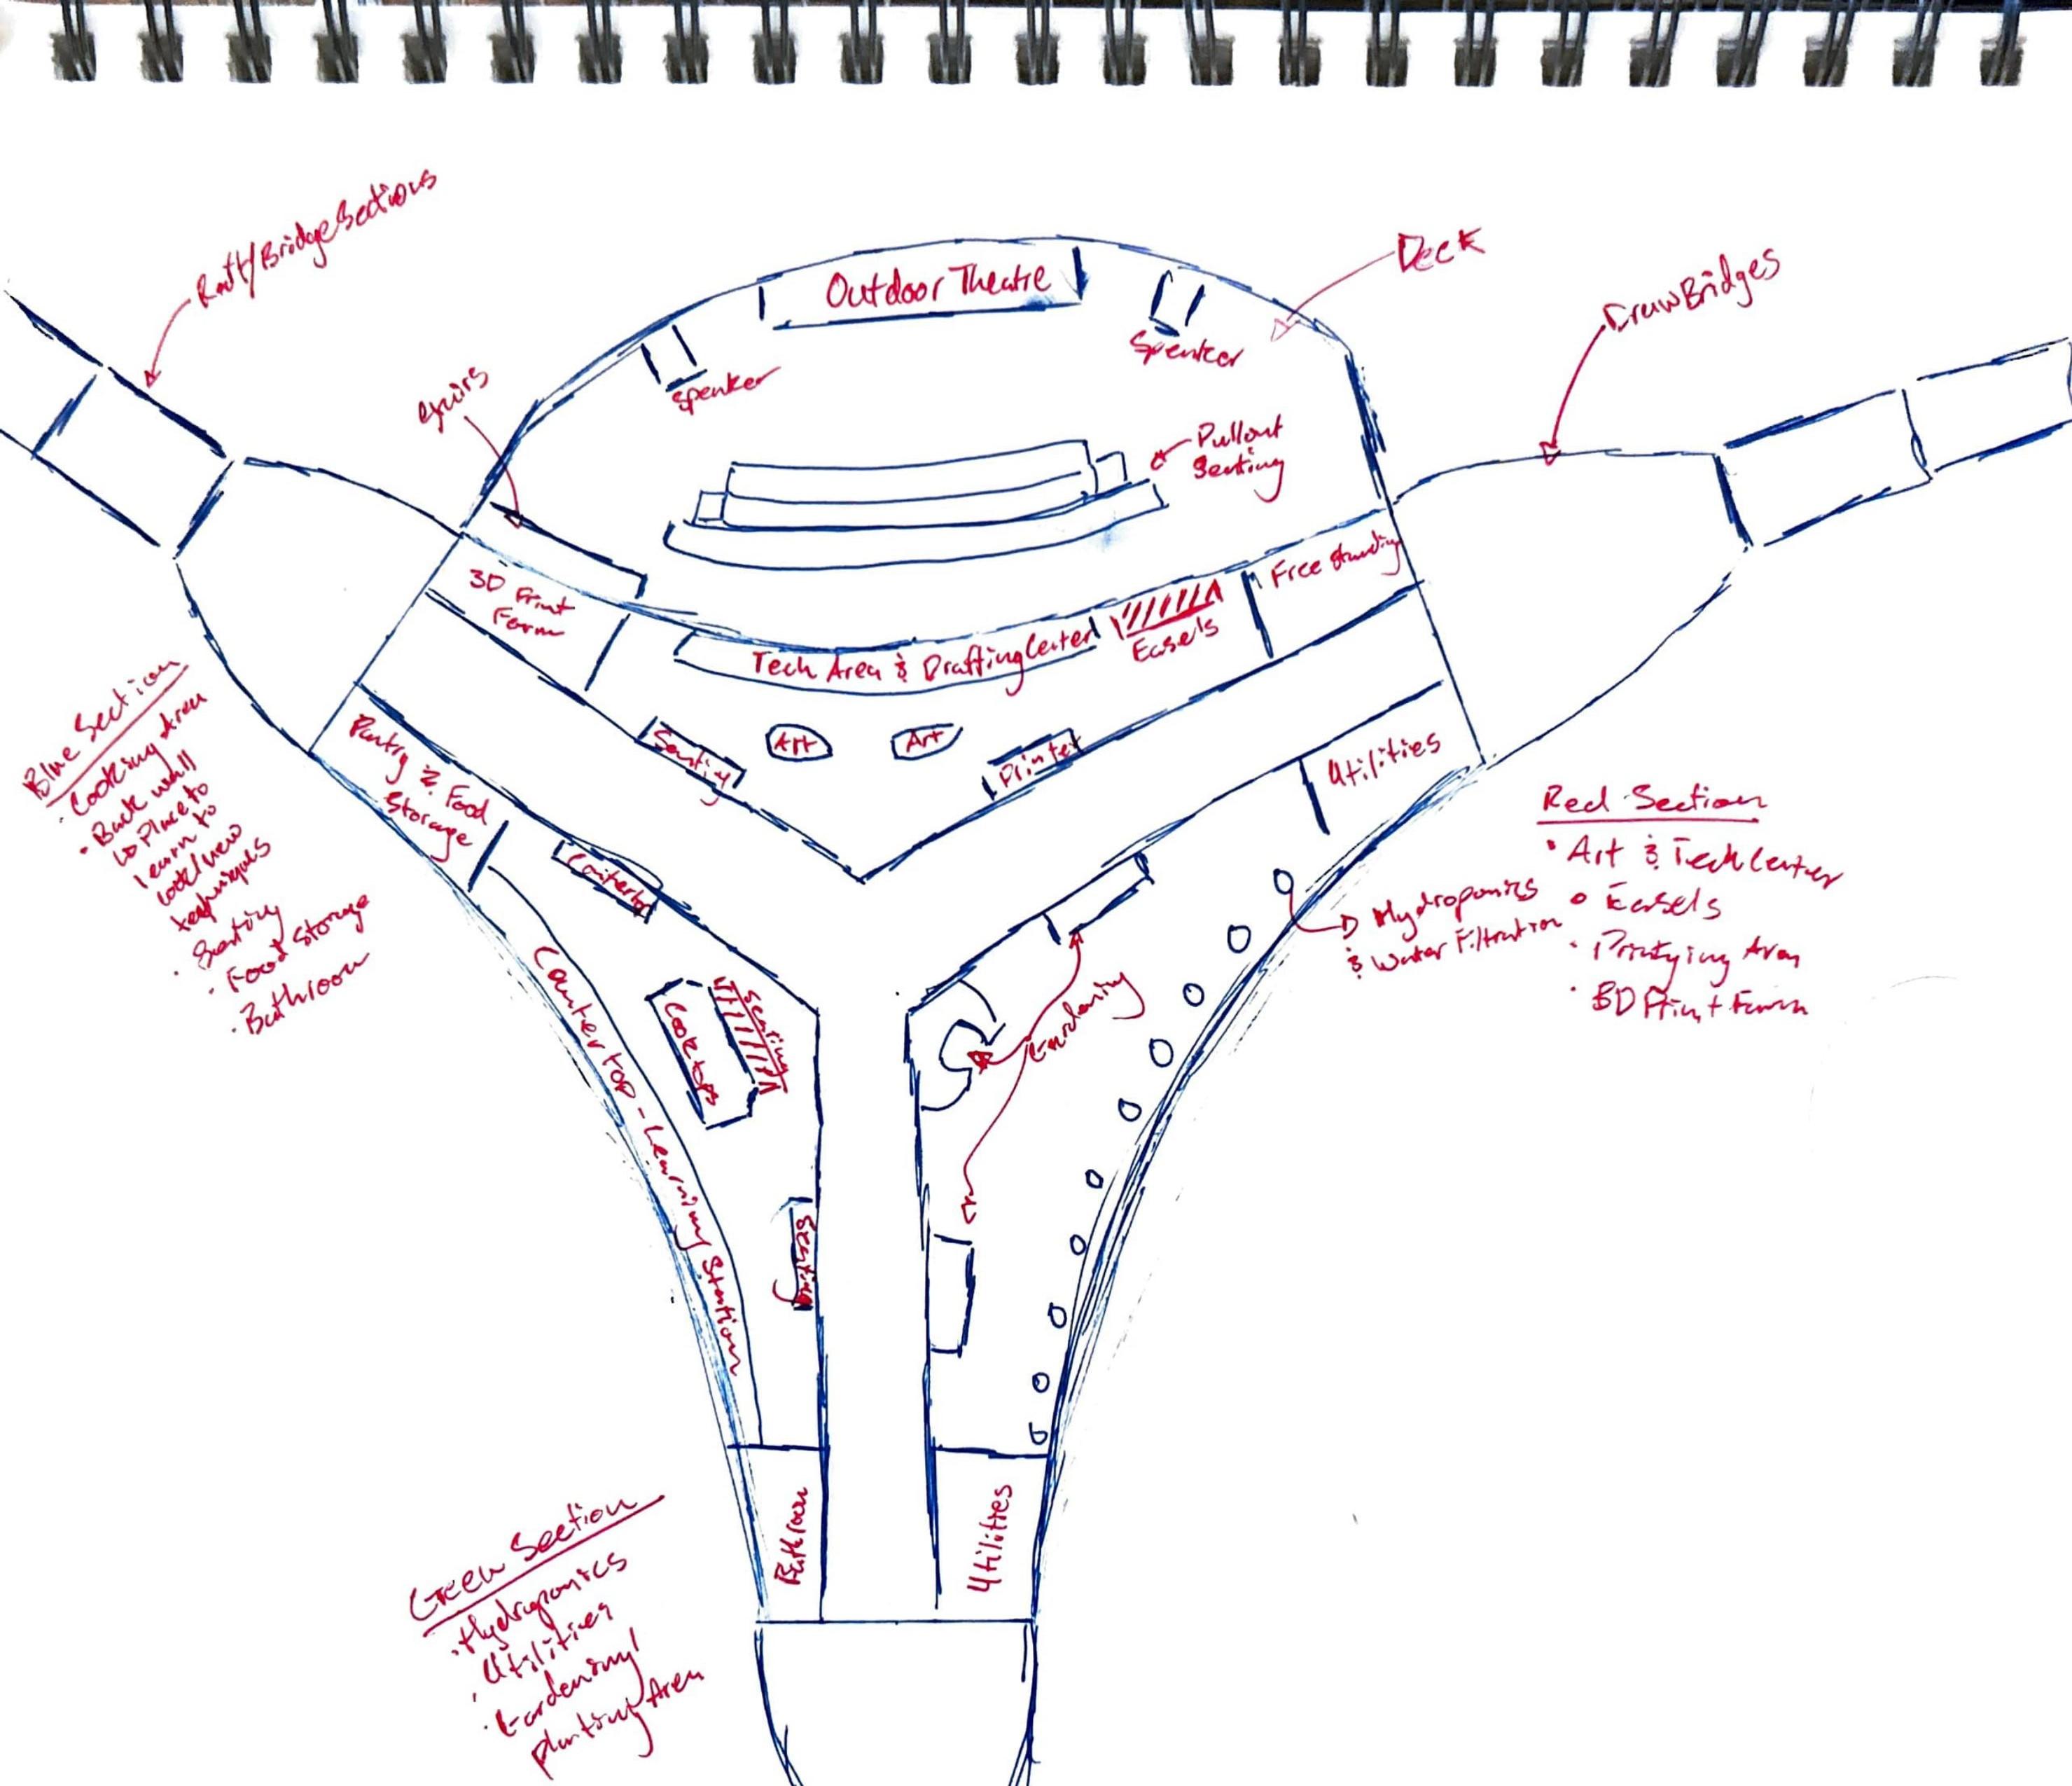 Raft/Bridge Sections
Deck
DrawBridges
Outdoor Theatre
Speaker
Speaker
Pullout
Seating
3D Print
Farm
Free Standing
Easels
Tech Area & Drafting Center
Seating
Art
Art
Printer
Pantry & Food
Storage
Utilities
Blue Section
· Cooking Area
· Back wall
↳ Place to
learn to
· Seating
· Food Storage
· Bathroom
Red Section
· Art & Tech Center
· Easels
· Printying Area
· 3D Print Farm
Hydroponics
& Water Filtration
Countertop - Learning Station
Cooktops
Seating
Gardening
Seating
Bathroom
Utilities
Green Section
· Hydroponics
· Utilities
· Gardening/
planting Area